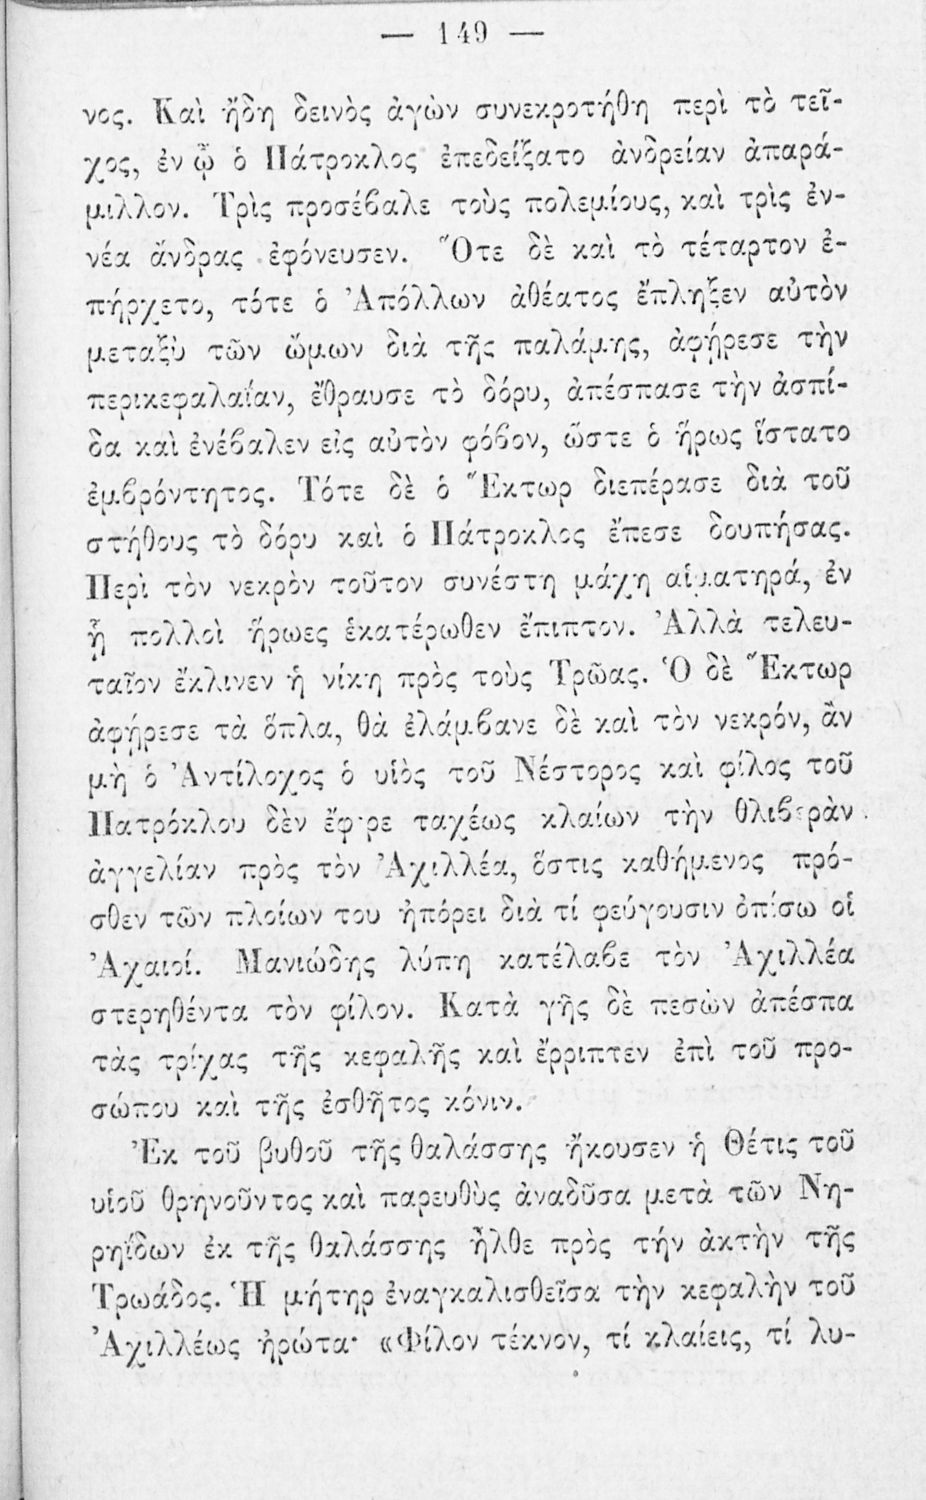 — 149 —
νος. Καὶ ἤδη δεινὸς ἀγὼν συνεκροτήθη περὶ τὸ τεῖ-
χος, ἐν ᾧ ὁ Πάτροκλος ἐπεδείξατο ἀνδρείαν ἀπαρά-
μιλλον. Τρὶς προσέβαλε τοὺς πολεμίους, καὶ τρὶς ἐν-
νέα ἄνδρας ἐφόνευσεν. Ὅτε δὲ καὶ τὸ τέταρτον ἐ-
πήρχετο, τότε ὁ Ἀπόλλων ἀθέατος ἔπληξεν αὐτὸν
μεταξὺ τῶν ὤμων διὰ τῆς παλάμης, ἀφῄρεσε τὴν
περικεφαλαίαν, ἔθραυσε τὸ δόρυ, ἀπέσπασε τὴν ἀσπί-
δα καὶ ἐνέβαλεν εἰς αὐτὸν φόβον, ὥστε ὁ ἥρως ἵστατο
ἐμβρόντητος. Τότε δὲ ὁ Ἕκτωρ διεπέρασε διὰ τοῦ
στήθους τὸ δόρυ καὶ ὁ Πάτροκλος ἔπεσε δουπήσας.
Περὶ τὸν νεκρὸν τοῦτον συνέστη μάχη αἱματηρά, ἐν
ᾗ πολλοὶ ἥρωες ἑκατέρωθεν ἔπιπτον. Ἀλλὰ τελευ-
ταῖον ἔκλινεν ἡ νίκη πρὸς τοὺς Τρῶας. Ὁ δὲ Ἕκτωρ
ἀφῄρεσε τὰ ὅπλα, θὰ ἐλάμβανε δὲ καὶ τὸν νεκρόν, ἂν
μὴ ὁ Ἀντίλοχος ὁ υἱὸς τοῦ Νέστορος καὶ φίλος τοῦ
Πατρόκλου δὲν ἔφερε ταχέως κλαίων τὴν θλιβερὰν
ἀγγελίαν πρὸς τὸν Ἀχιλλέα, ὅστις καθήμενος πρό-
σθεν τῶν πλοίων του ἠπόρει διὰ τί φεύγουσιν ὀπίσω οἱ
Ἀχαιοί. Μανιώδης λύπη κατέλαβε τὸν Ἀχιλλέα
στερηθέντα τὸν φίλον. Κατὰ γῆς δὲ πεσὼν ἀπέσπα
τὰς τρίχας τῆς κεφαλῆς καὶ ἔρριπτεν ἐπὶ τοῦ προ-
σώπου καὶ τῆς ἐσθῆτος κόνιν.
Ἐκ τοῦ βυθοῦ τῆς θαλάσσης ἤκουσεν ἡ Θέτις τοῦ
υἱοῦ θρηνοῦντος καὶ παρευθὺς ἀναδῦσα μετὰ τῶν Νη-
ρηΐδων ἐκ τῆς θαλάσσης ἦλθε πρὸς τήν ἀκτὴν τῆς
Τρωάδος. Ἡ μήτηρ ἐναγκαλισθεῖσα τὴν κεφαλὴν τοῦ
Ἀχιλλέως ἠρώτα· «Φίλον τέκνον, τί κλαίεις, τί λυ-